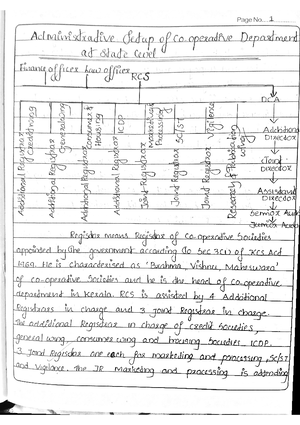 Page No. 1
Administrative Setup of Co-operative Department
at State level
Finance officer Law officer
RCS
DCA
Additional Registrar Credit
Additional Registrar General
Additional Registrar Consumer & Housing
Additional Registrar ICDP
Joint Registrar Marketing Processing
Joint Registrar SC/ST
Joint Registrar Vigilance
Research & Publication wing
Additional Director
Joint Director
Assistant Director
Senior Aud
Junior Aud
Registrar means Registrar of Co-operative Societies
appointed by the government according to Sec 3(1) of KCS Act
1969. He is characterised as 'Brahma, Vishnu, Maheswara'
of co-operative Societies and he is the head of co-operative
department in Kerala. RCS is assisted by 4 Additional
Registrars in charge and 3 joint Registrar in charge.
The additional Registrar in charge of credit Societies,
general wing, consumer wing and housing Societies ICDP.
3 Joint Registrar are each for marketing and processing, SC/ST
and Vigilance. The JR Marketing and processing is attending